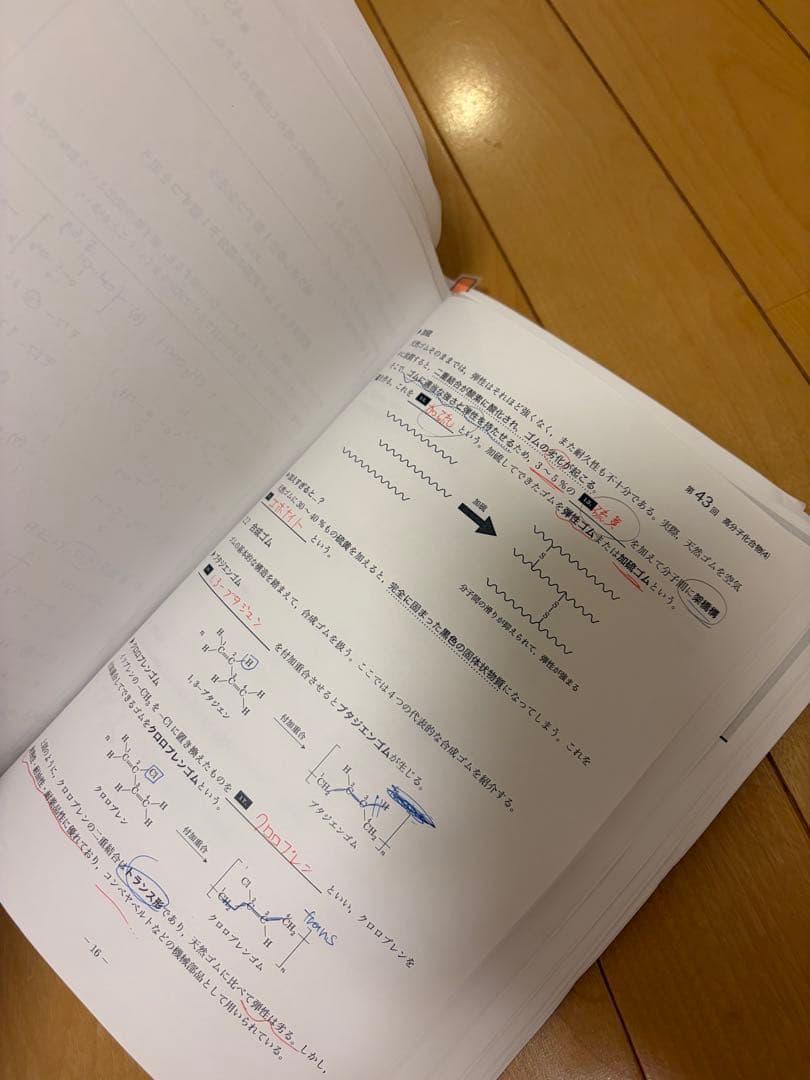 第43回 高分子化合物(4)
天然ゴムそのままでは，弾性はそれほど強くなく，また耐久性も不十分である。実際，天然ゴムを空気
に放置すると，二重結合が酸素に酸化され，ゴムの劣化が起こる。
そこで，ゴムに適当な強さと弾性を持たせるため，3～5％の 硫黄 を加えて分子間に架橋構
これを 加硫 という。加硫してできたゴムを弾性ゴムまたは加硫ゴムという。
加硫
S
S
S
分子間の滑りが抑えられて，弾性が強まる
すぎると…？
ゴムに30～40％もの硫黄を加えると，完全に固まった黒色の固体状物質になってしまう。これを
エボナイト という。
合成ゴム
ゴムの基本的な構造を踏まえて，合成ゴムを扱う。ここでは4つの代表的な合成ゴムを紹介する。
ブタジエンゴム
1,3-ブタジエン を付加重合させるとブタジエンゴムが生じる。
n H H C C H H C C H H
1, 3-ブタジエン
付加重合
H C C H CH₂ CH₂ n
ブタジエンゴム
クロロプレンゴム
イソプレンの-CH₃を-Clに置き換えたものを 17 クロロプレン といい，クロロプレンを
付加重合してできるゴムをクロロプレンゴムという。
n H Cl C C H H C C H H
クロロプレン
付加重合
Cl C C H CH₂ CH₂ n
クロロプレンゴム
trans
のように，クロロプレンの二重結合はトランス形であり，天然ゴムに比べて弾性は劣る。しかし，
耐薬品性に優れており，コンベヤベルトなどの機械部品として用いられている。
- 16 -